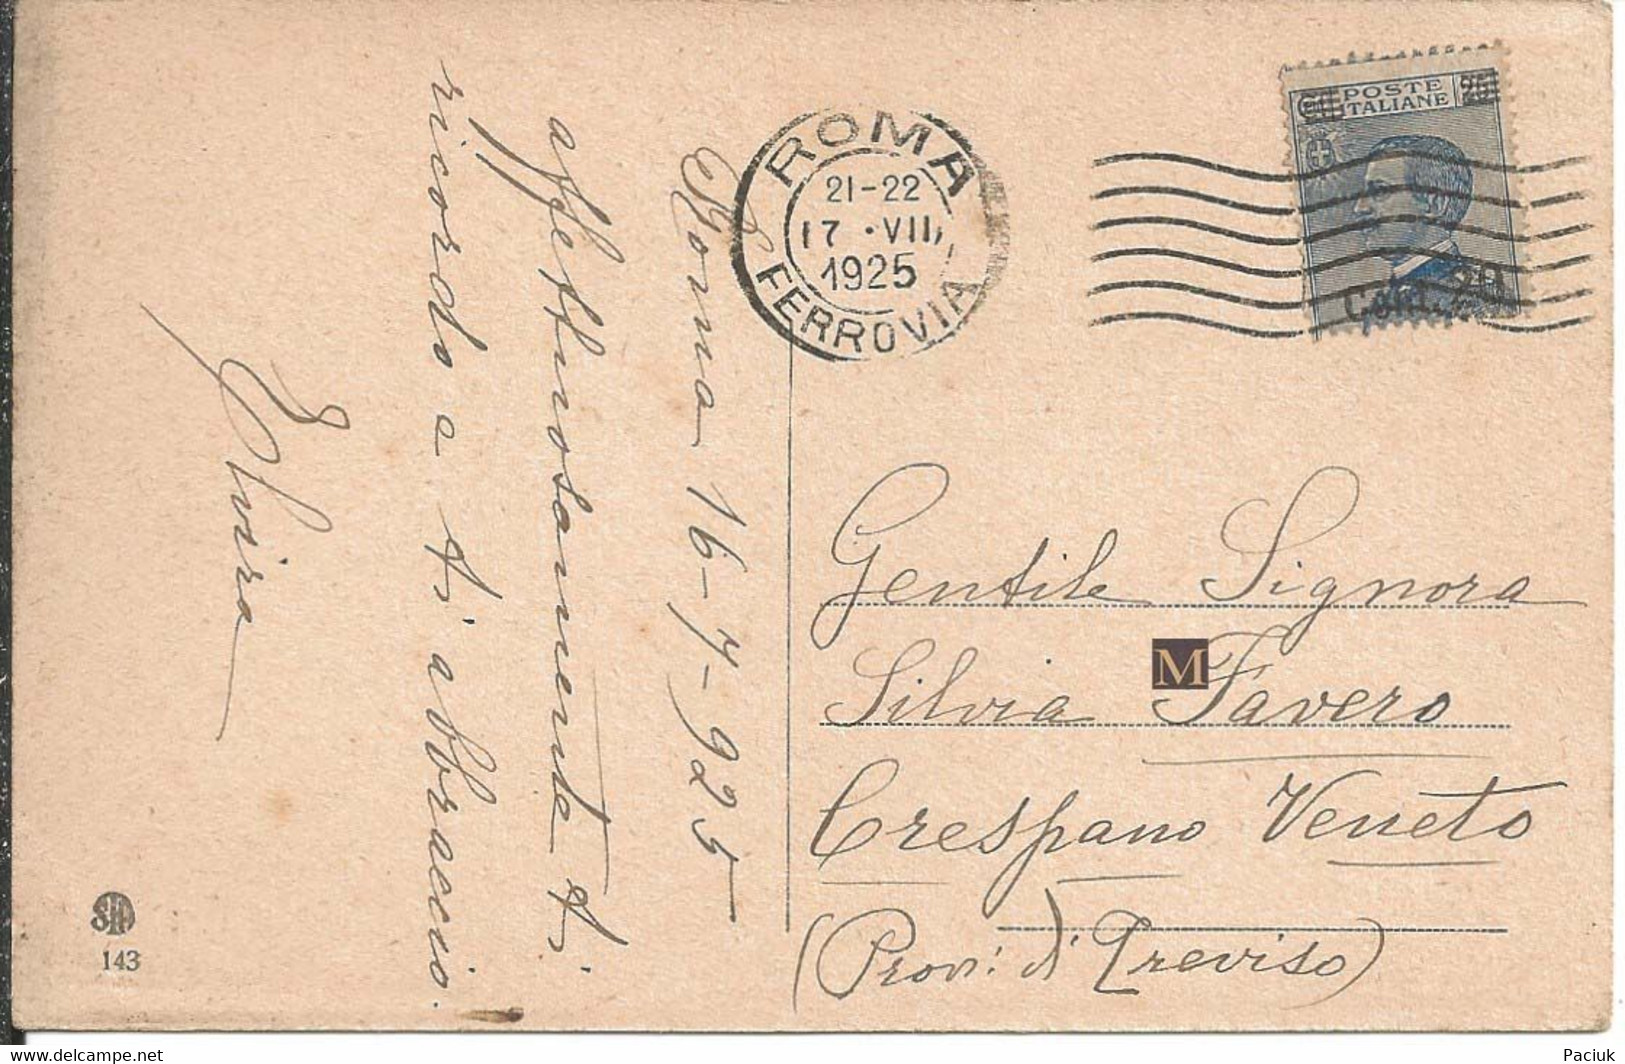 Roma 16-7-925
affettuosamente ti
ricordo e ti abbraccio.
Elvira
SIA
143
ROMA
21-22
17 · VII,
1925
FERROVIA
POSTE
ITALIANE
25
Cent. 20
Gentile Signora
Silvia Favero
M
Crespano Veneto
(Prov: di Treviso)
delcampe.net
Paciuk